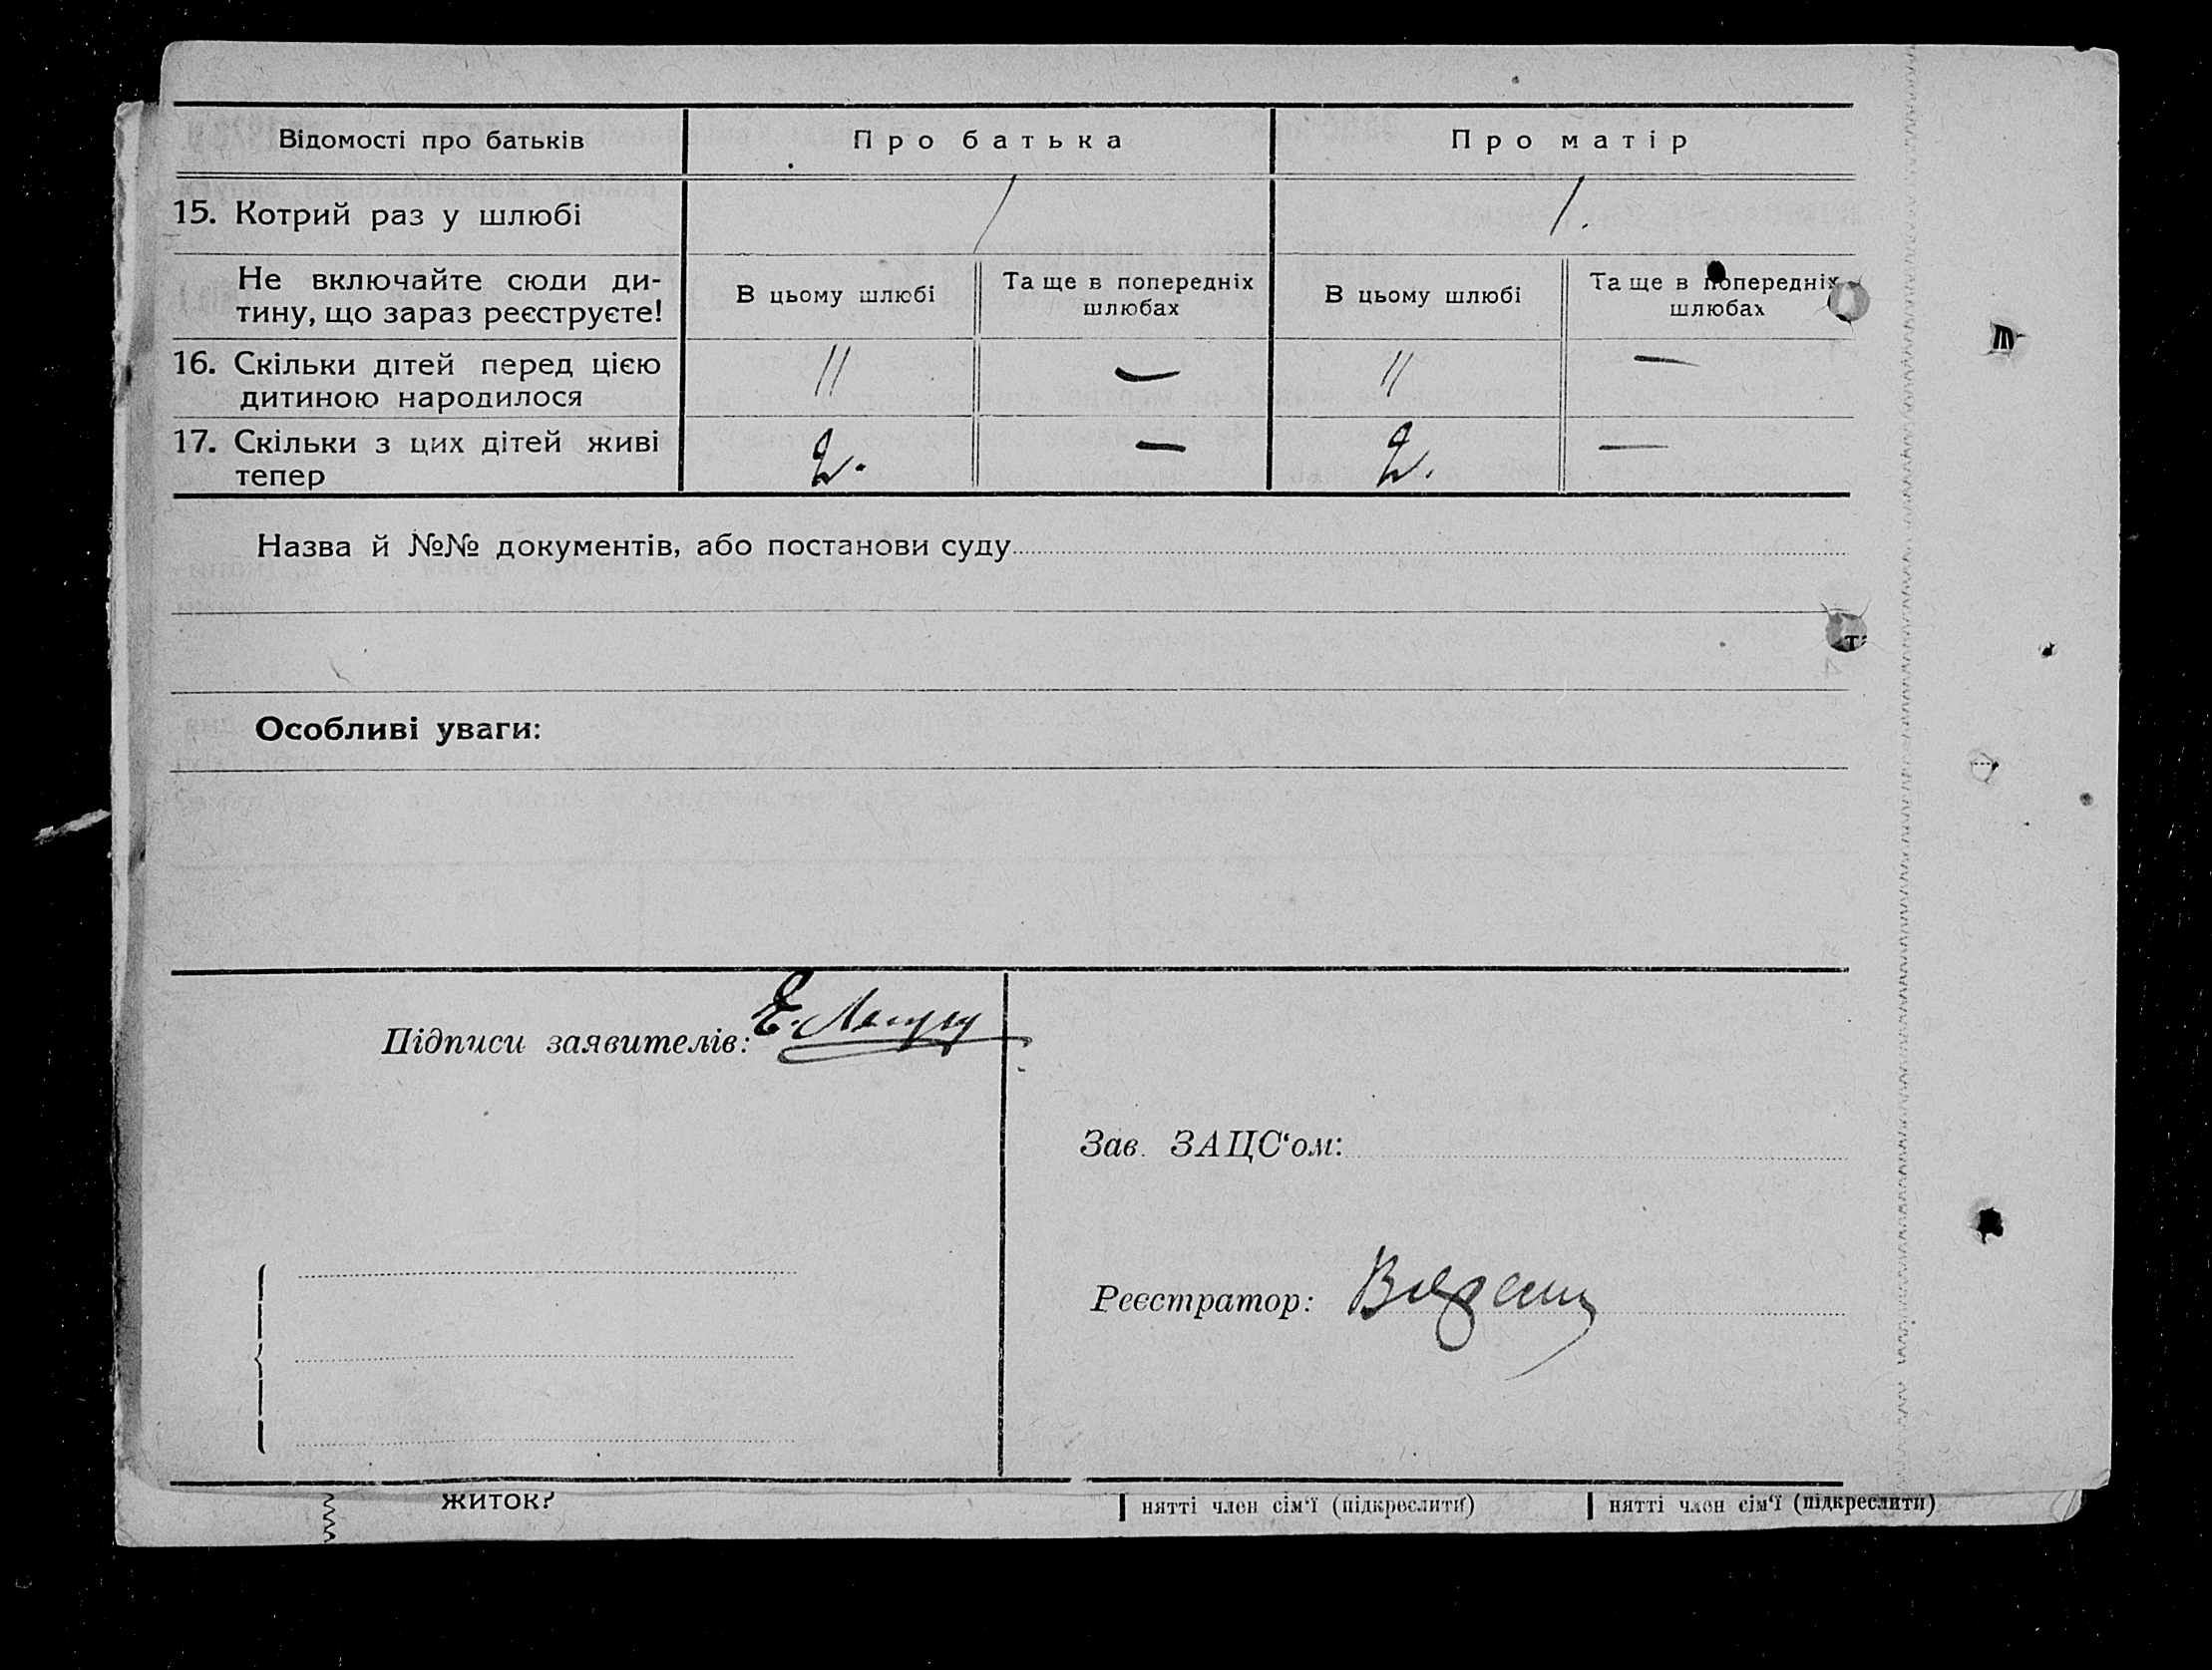 Відомості про батьків Про батька Про матір
15. Котрий раз у шлюбі / /.
Не включайте сюди ди- В цьому шлюбі Та ще в попередніх В цьому шлюбі Та ще в попередніх
тину, що зараз реєструєте! шлюбах шлюбах
16. Скільки дітей перед цією 11 — 11 —
дитиною народилося
17. Скільки з цих дітей живі 2. — 2. —
тепер
Назва й №№ документів, або постанови суду
Особливі уваги:
Підписи заявителів: Е.
Зав. ЗАЦС‘ом:
Реєстратор:
житок?
нятті член сім‘ї (підкреслити) нятті член сім‘ї (підкреслити)